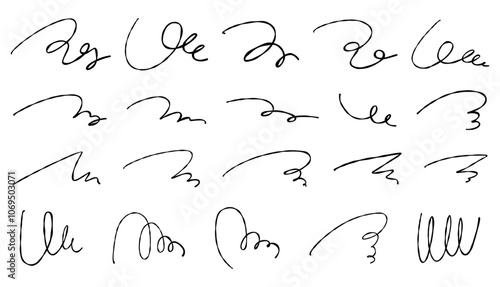 Adobe Stock | #1069503071